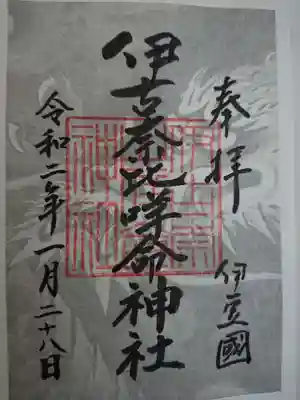 奉拝
伊豆國
伊古奈比咩命神社
令和二年一月二十八日